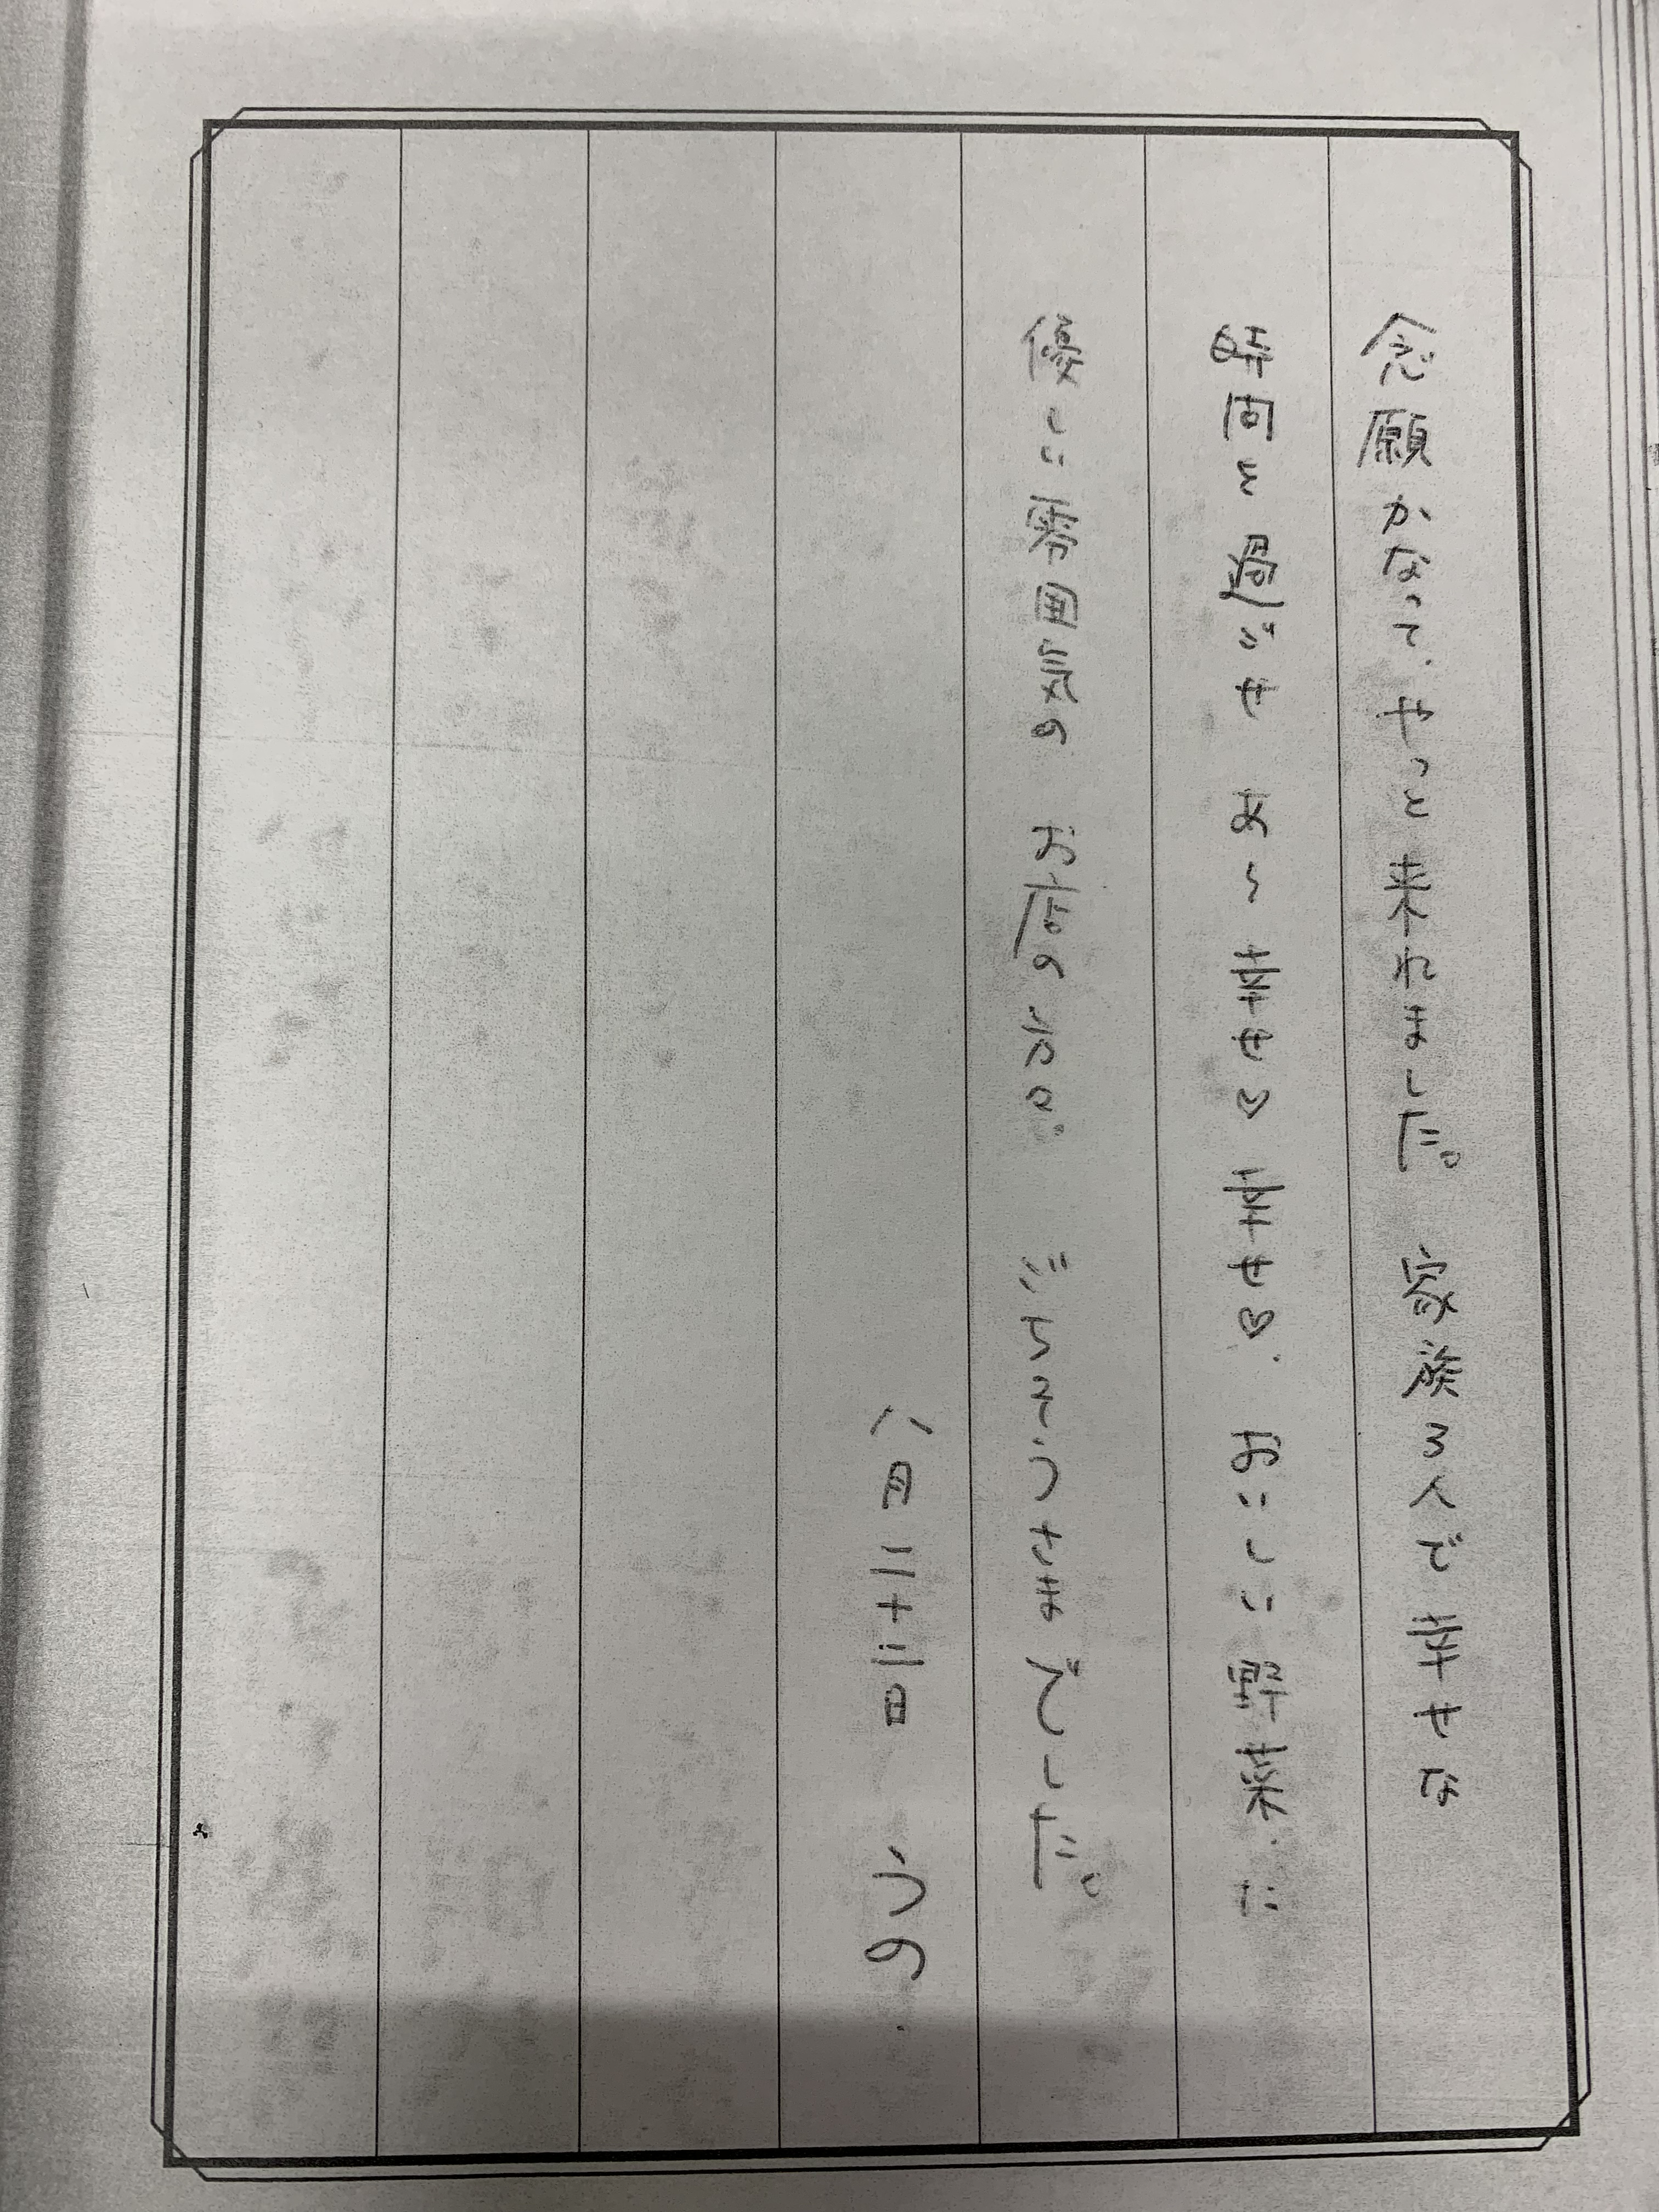 念願かなって、やっと来れました。家族3人で幸せな
時間を過ごせ お〜幸せ♡幸せ♡、おいしい野菜、に
優しい雰囲気の お店の ごちそうさまでした。
八月二十二日